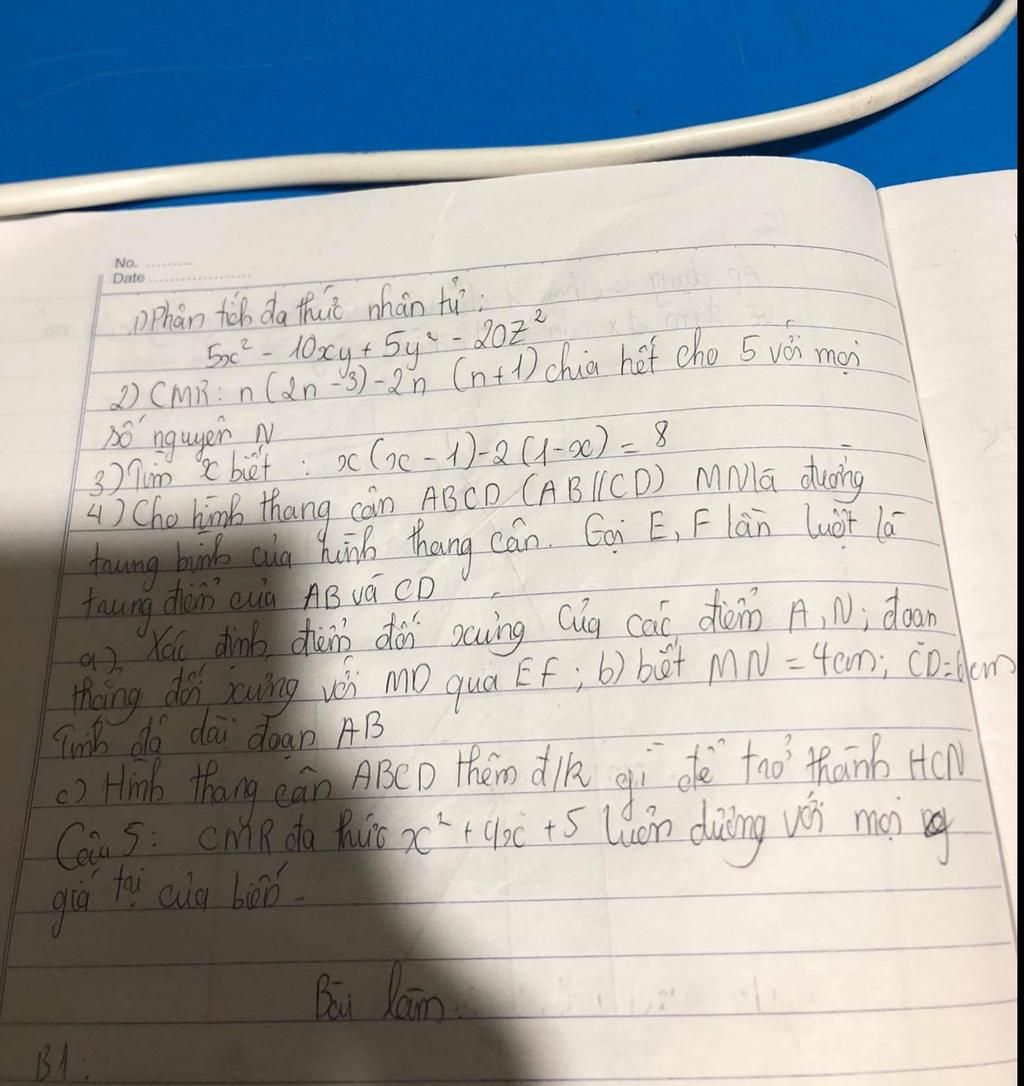 No. ..........
Date ......................
1) Phân tích đa thức nhân tử:
5x² - 10xy + 5y² - 20z²
2) CMR: n(2n - 3) - 2n (n+1) chia hết cho 5 với mọi
số nguyên N
3) Tìm x biết : x(x - 1) - 2(1-x) = 8
4) Cho hình thang cân ABCD (AB//CD) MN là đường
trung bình của hình thang cân. Gọi E, F lần lượt là
trung điểm của AB và CD
a) Xác định điểm đối xứng của các điểm A, N; đoạn
thẳng đối xứng với MD qua EF; b) biết MN = 4cm; CD=6cm
Tính độ dài đoạn AB
c) Hình thang cân ABCD thêm đ/k gì để trở thành HCN
Câu 5: CMR đa thức x² + 4x + 5 luôn dương với mọi
giá trị của biến.
Bài làm.
B1: